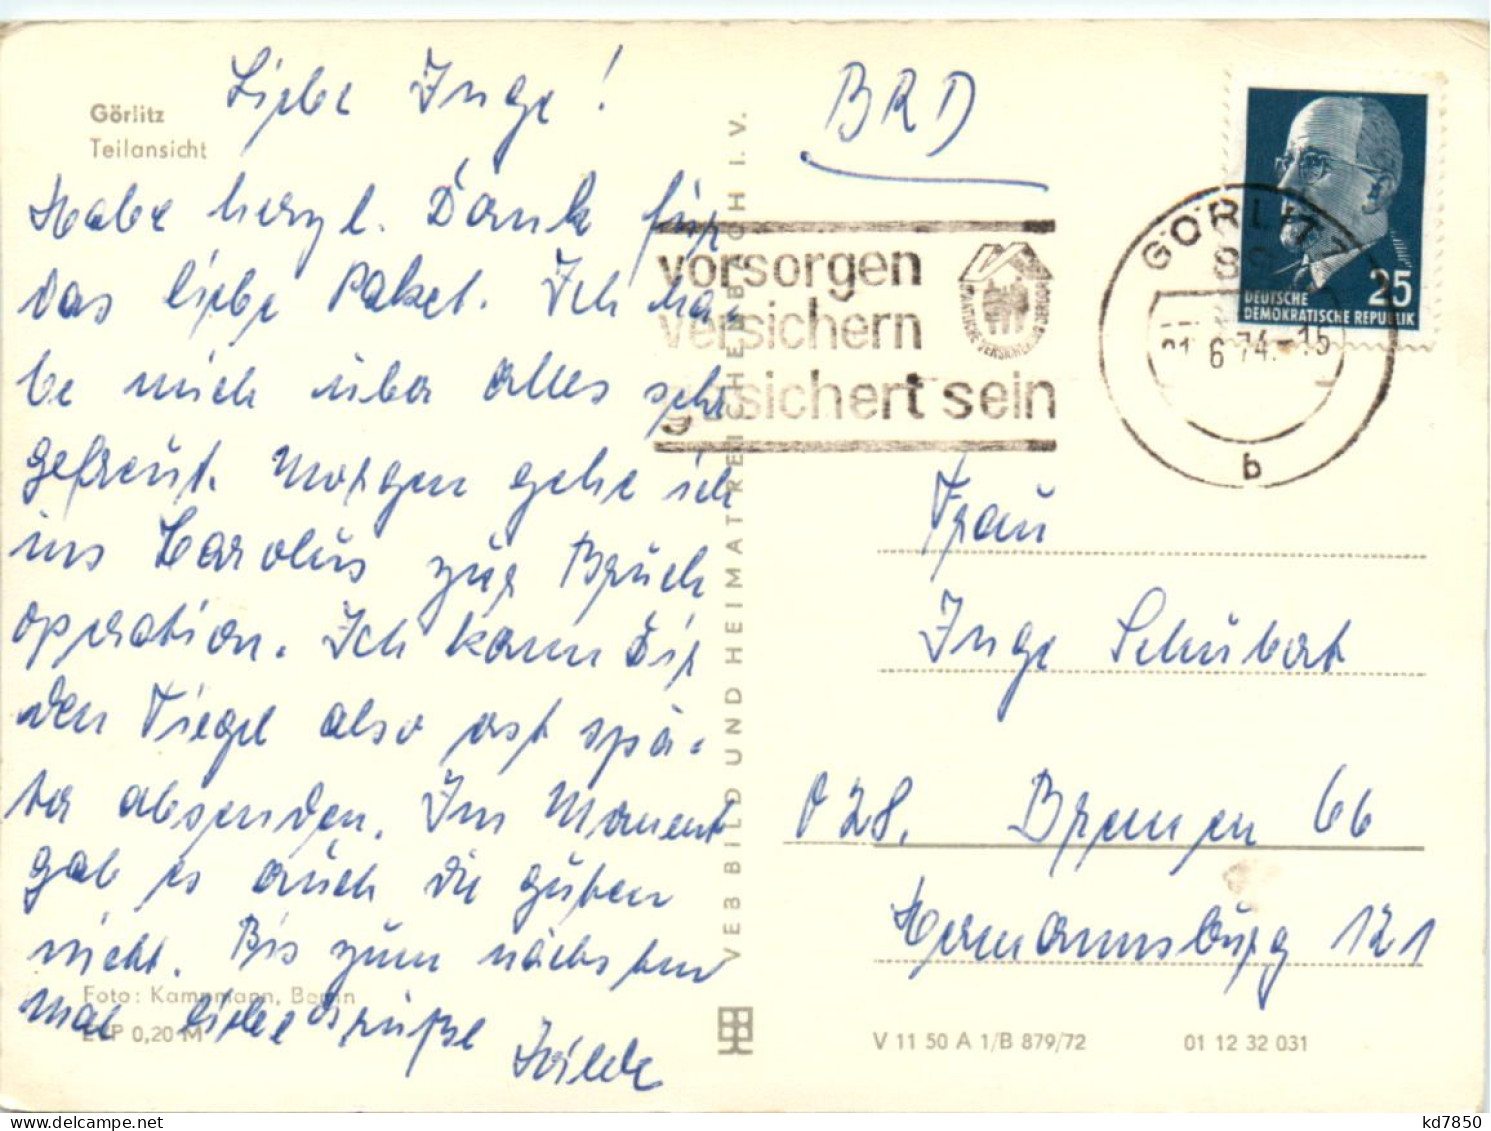 Görlitz
Teilansicht
Liebe Inge!
Habe herzl. Dank für
das liebe Paket. Ich ha-
be mich über alles sehr
gefreut. Morgen gehe ich
ins Karolus zur Bruch
operation. Ich kann Dir
den Tiegel also erst spä-
ter absenden. Im Moment
gab es auch die guten
nicht. Bis zum nächsten
mal liebe Grüße Hilde
Foto: Kampmann, Berlin
EVP 0,20 M
VEB BILD UND HEIMAT REICHENBACH I. V.
BRD
vorsorgen
versichern
gesichert sein
GÖRLITZ
6.74.-15
b
25
DEUTSCHE
DEMOKRATISCHE REPUBLIK
Frau
Inge Schubert
028. Bremen 66
Hermannsburg 121
V 11 50 A 1/B 879/72
01 12 32 031
kd7850